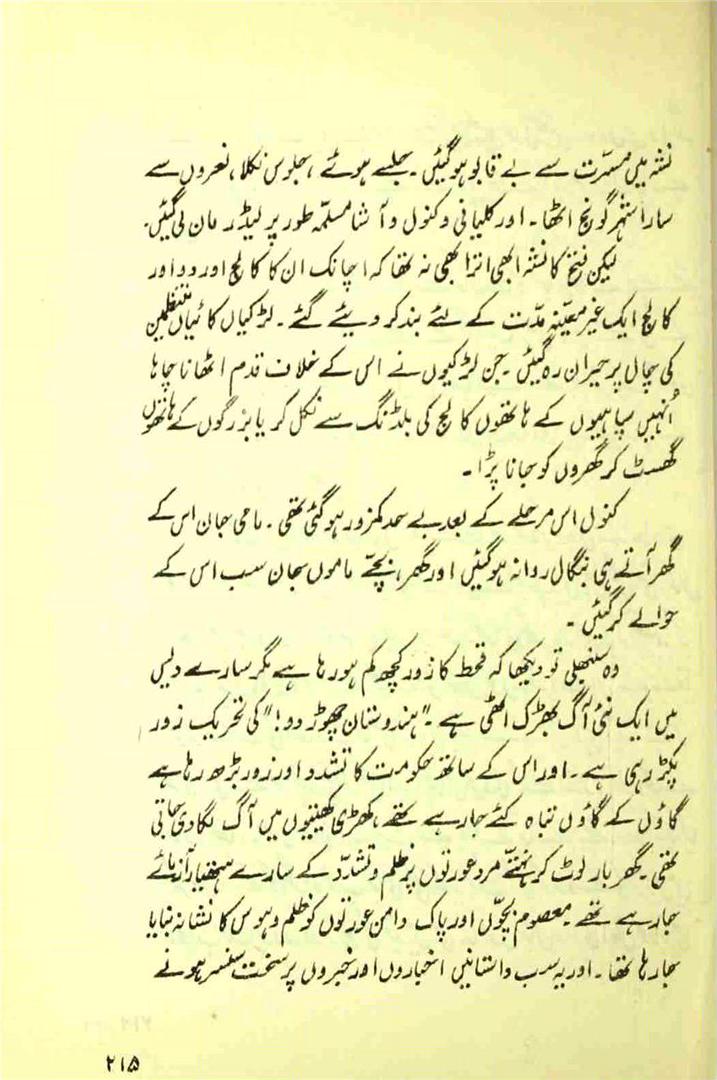 نشہ میں مسرّت سے بے قابو ہوگئیں۔ جلسے ہوئے، جلوس نکلا، نعروں سے
سارا شہر گونج اٹھا۔ اور کلیانی و کنول و آشا مسلّمہ طور پر لیڈر مان لی گئیں۔
لیکن فتح کا نشہ ابھی اترا بھی نہ تھا کہ اچانک ان کا کالج اور دو اور
کالج ایک غیر معیّنہ مدّت کے لئے بند کر دیئے گئے۔ لڑکیاں کائیاں منتظمین
کی چال پر حیران رہ گئیں۔ جن لڑکیوں نے اس کے خلاف قدم اٹھانا چاہا
اُنہیں سپاہیوں کے ہاتھوں کالج کی بلڈنگ سے نکل کر یا بزرگوں کے ہاتھوں
گھسٹ کر گھروں کو جانا پڑا۔
کنول اس مرحلے کے بعد بے حد کمزور ہوگئی تھی۔ مامی جان اس کے
گھر آتے ہی بنگال روانہ ہوگئیں اور گھر، بچّے ماموں جان سب اس کے
حوالے کر گئیں۔
وہ سنبھلی تو دیکھا کہ قحط کا زور کچھ کم ہو رہا ہے مگر سارے دیس
میں ایک نئی آگ بھڑک اٹھی ہے۔ "ہندوستان چھوڑ دو!" کی تحریک زور
پکڑ رہی ہے۔ اور اس کے ساتھ حکومت کا تشدد اور زور بڑھ رہا ہے
گاؤں کے گاؤں تباہ کئے جا رہے تھے، کھڑی کھیتیوں میں آگ لگا دی جاتی
تھی۔ گھر بار لوٹ کر نہتّے مرد عورتوں پر ظلم و تشدّد کے سارے ہتھیار آزمائے
جا رہے تھے۔ معصوم بچّوں اور پاک دامن عورتوں کو ظلم و ہوس کا نشانہ بنایا
جا رہا تھا۔ اور یہ سب داستانیں اخباروں اور خبروں پر سخت سنسر ہونے
۲۱۵